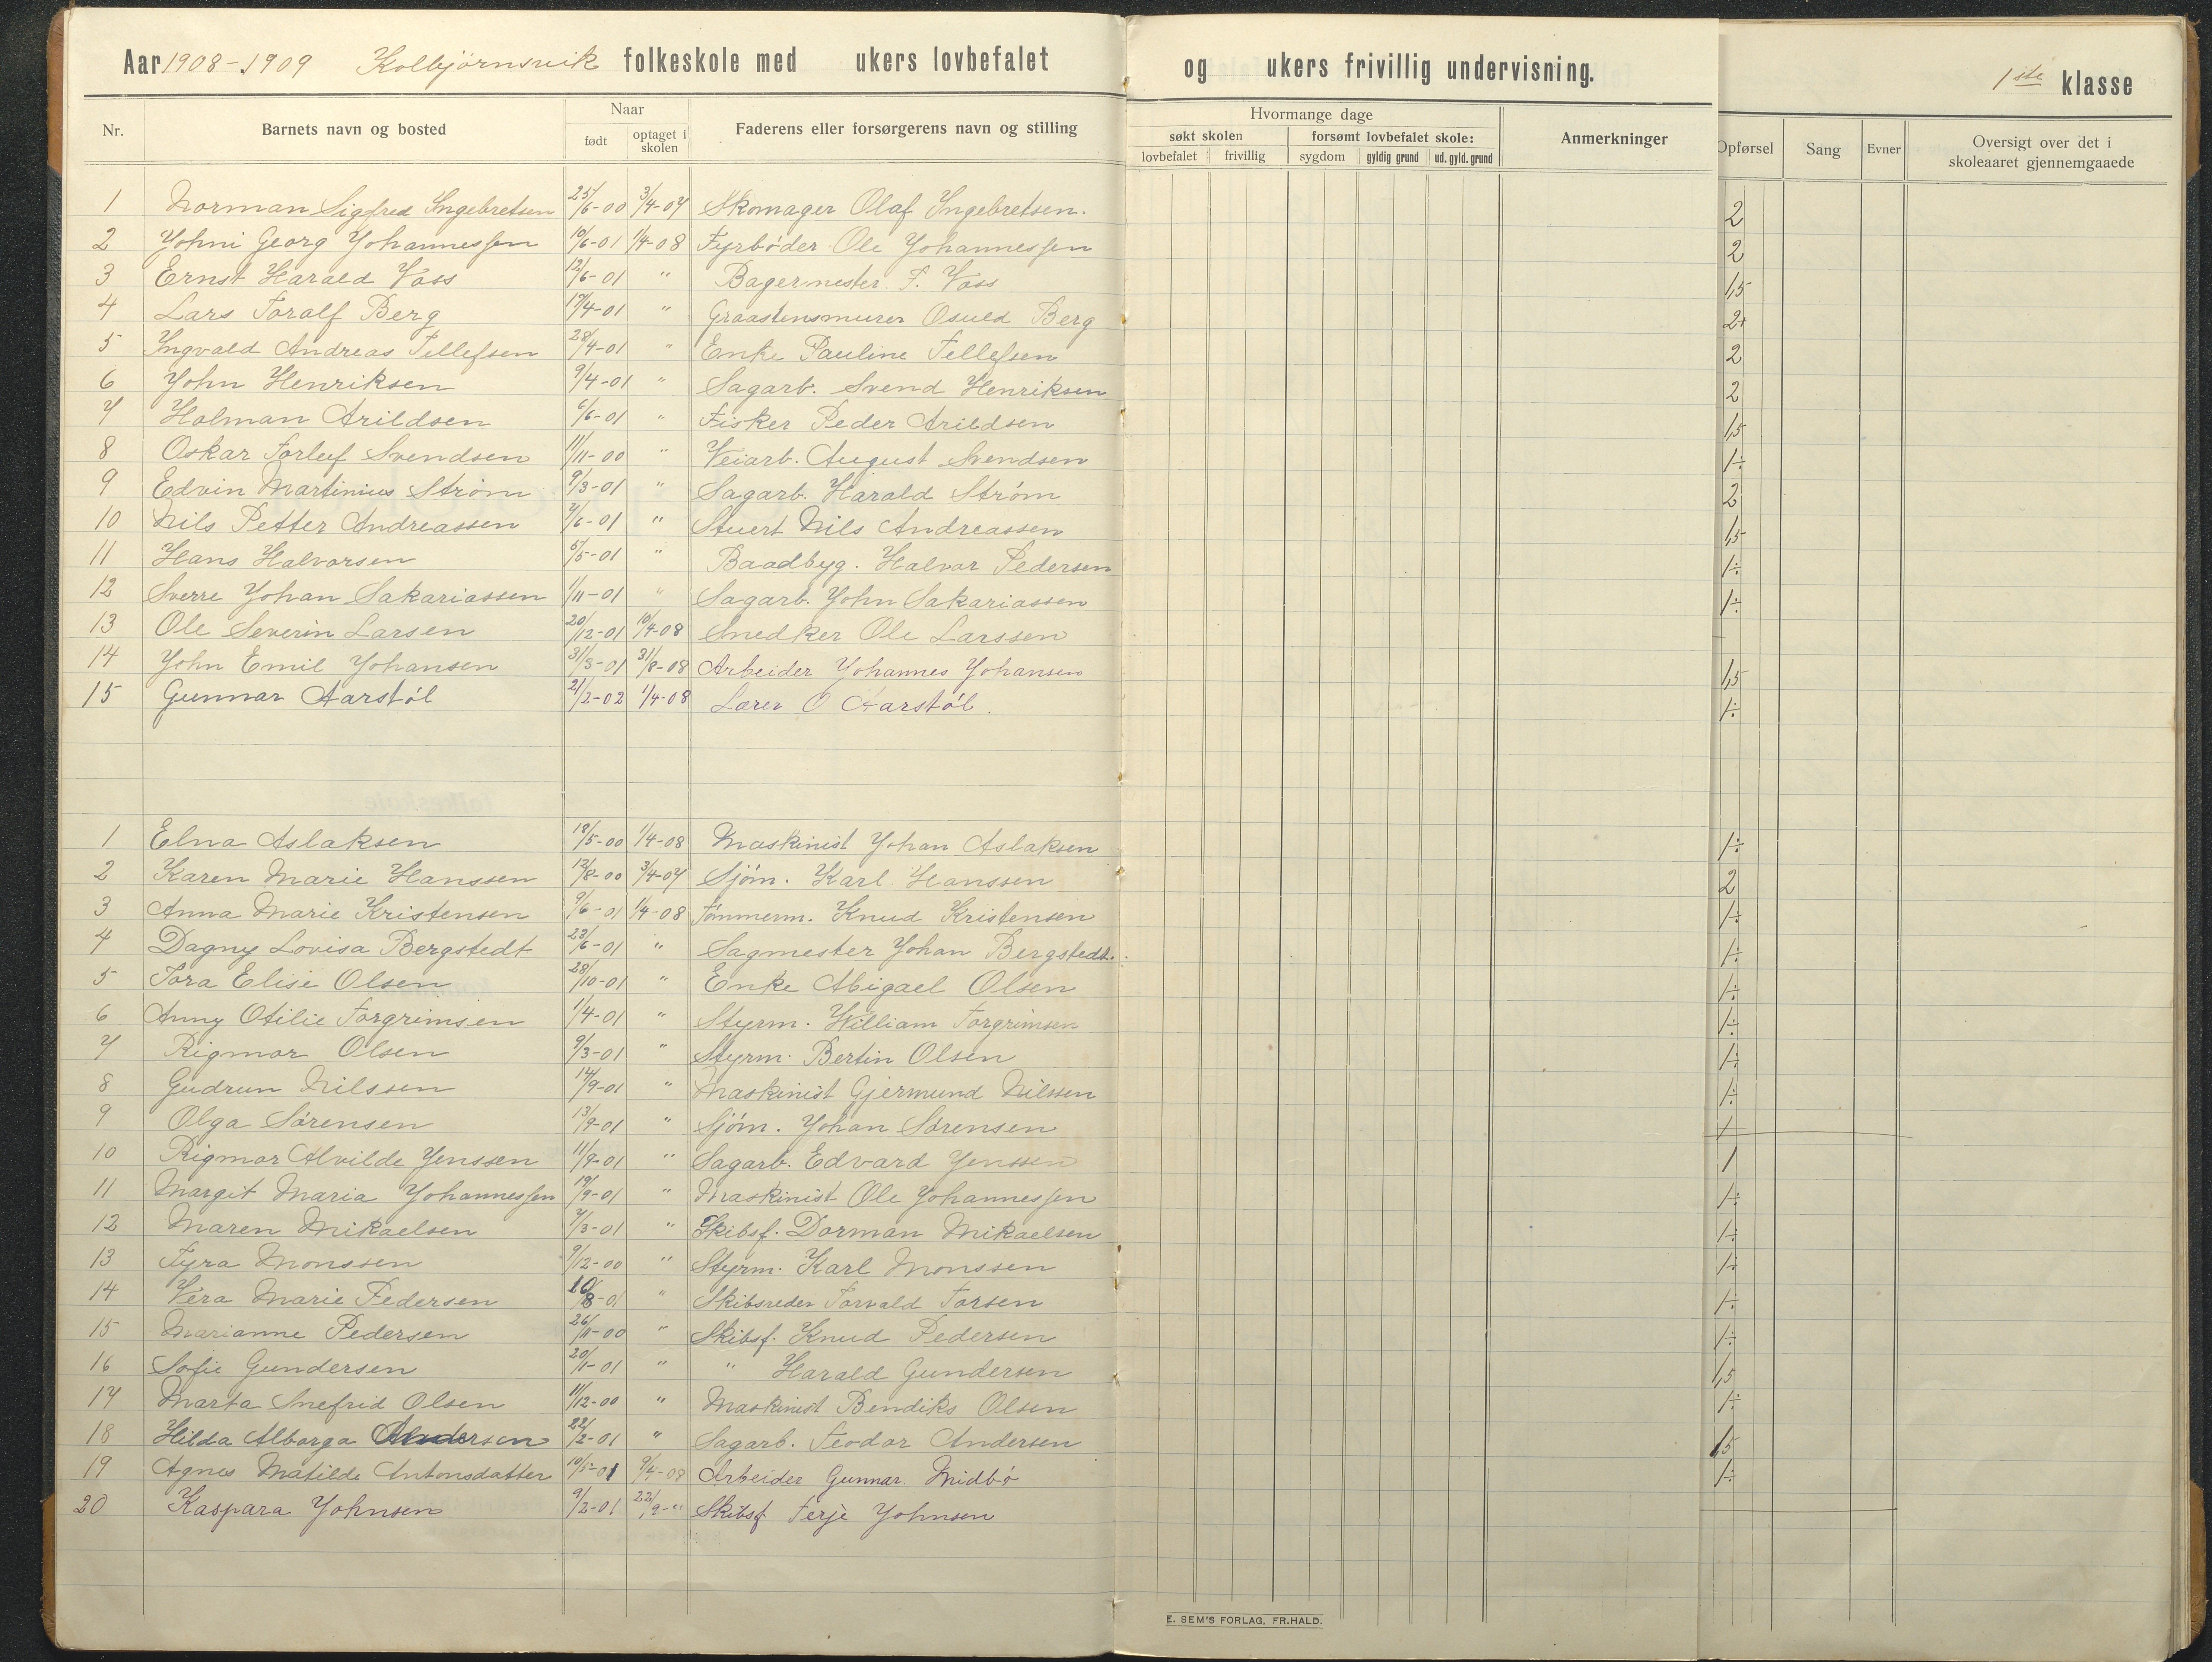 Aar 1908-1909 Kolbjörnsvik folkeskole med ukers lovbefalet og ukers frivillig undervisning. 1ste klasse
Nr. Barnets navn og bosted Naar født optaget i skolen Faderens eller forsørgerens navn og stilling Hvormange dage søkt skolen lovbefalet frivillig forsømt lovbefalet skole: sygdom gyldig grund ud. gyld. grund Anmerkninger Opførsel Sang Evner Oversigt over det i skoleaaret gjennemgaaede
1 Norman Sigfred Ingebretsen 25/6-00 3/4-07 Skomager Olaf Ingebretsen. 2
2 Johni Georg Johannessen 10/6-01 1/4-08 Fyrbøder Ole Johannessen 2
3 Ernst Harald Voss 12/6-01 " Bagermester F. Voss 1,5
4 Lars Toralf Berg 17/4-01 " Graastensmurer Osuld Berg 2+
5 Ingvald Andreas Tellefsen 28/4-01 " Enke Pauline Tellefsen 2
6 John Henriksen 9/4-01 " Sagarb. Svend Henriksen 2
7 Holman Arildsen 6/6-01 " Fisker Peder Arildsen 1,5
8 Oskar Torleif Svendsen 11/11-00 " Veiarb. August Svendsen 1÷
9 Edvin Martinius Strøm 9/3-01 " Sagarb. Harald Strøm 2
10 Nils Petter Andreassen 7/6-01 " Stuert Nils Andreassen 1,5
11 Hans Halvorsen 5/5-01 " Baadbyg. Halvor Pedersen 1÷
12 Sverre Johan Sakariassen 1/11-01 " Sagarb. John Sakariassen 1÷
13 Ole Severin Larsen 20/12-01 10/4-08 Snedker Ole Larssen
14 John Emil Johansen 31/3-01 31/8-08 Arbeider Johannes Johansen 1,5
15 Gunnar Aarstøl 21/2-02 1/4-08 Lærer O Aarstøl. 1÷
1 Elna Aslaksen 18/5-00 1/4-08 Maskinist Johan Aslaksen 1÷
2 Karen Marie Hanssen 12/8-00 3/4-07 Sjøm. Karl Hanssen 2
3 Anna Marie Kristensen 9/6-01 1/4-08 Tømmerm. Knud Kristensen 1÷
4 Dagny Lovisa Bergstedt 23/6-01 " Sagmester Johan Bergstedt. 1÷
5 Tora Elise Olsen 28/10-01 " Enke Abigael Olsen 1÷
6 Anny Otilie Torgrimsen 1/4-01 " Styrm. William Torgrimsen 1÷
7 Rigmor Olsen 9/3-01 " Styrm. Bertin Olsen 1÷
8 Gudrun Nilssen 14/9-01 " Maskinist Gjermund Nilssen 1÷
9 Olga Sørensen 13/9-01 " Sjøm. Johan Sørensen 1
10 Rigmor Alvilde Jenssen 11/9-01 " Sagarb. Edvard Jenssen 1
11 Margit Maria Johannessen 19/9-01 " Maskinist Ole Johannessen 1÷
12 Maren Mikaelsen 7/3-01 " Skibsf. Dorman Mikaelsen 1÷
13 Tyra Monssen 9/12-00 " Styrm. Karl Monssen 1÷
14 Vera Marie Pedersen 10/8-01 " Skibsreder Torvald Torsen 1÷
15 Marianne Pedersen 26/11-00 " Skibsf. Knud Pedersen 1÷
16 Sofie Gundersen 20/11-01 " " Harald Gundersen 1,5
17 Marta Snefrid Olsen 11/12-00 " Maskinist Bendiks Olsen 1÷
18 Hilda Alborga Andersen 22/2-01 " Sagarb. Teodor Andersen 1,5
19 Agnes Matilde Antonsdatter 10/5-01 9/4-08 Arbeider Gunnar Midbø 1÷
20 Kaspara Johnsen 9/2-01 22/9-" Skibsf Terje Johnsen
E. SEM'S FORLAG, FR.HALD.